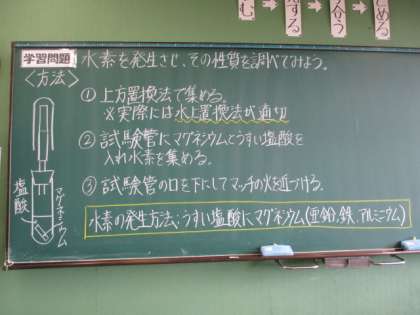 む
する
合う
とめる
学習問題 水素を発生させ、その性質を調べてみよう。
〈方法〉
① 上方置換法で集める。
※実際には水上置換法が適切
② 試験管にマグネシウムとうすい塩酸を
入れ水素を集める。
③ 試験管の口を下にしてマッチの火を近づける。
塩酸
マグネシウム
水素の発生方法:うすい塩酸にマグネシウム(亜鉛、鉄、アルミニウム)